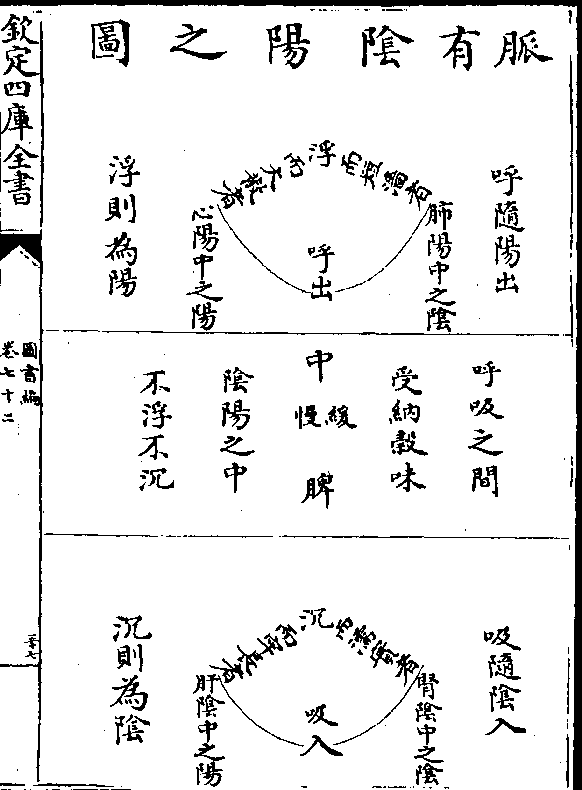 脈有陰陽之圖
呼隨陽出
肺陽中之陰
浮而短濇者
浮而大散者
呼出
心陽中之陽
浮則為陽
呼吸之間
受納穀味
中
緩慢
脾
陰陽之中
不浮不沉
吸隨陰入
腎陰中之陰
沉而濡實者
沉而牢長者
吸入
肝陰中之陽
沉則為陰
欽定四庫全書
圖書編
卷七十二
三十七